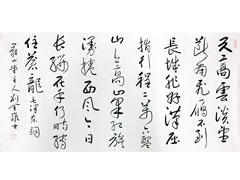 天高雲淡望
断南飛雁不到
長城非好漢屈
指行程二萬六盤
山上高峯紅旗
漫捲西風今日
長纓在手何時縛
住蒼龍 毛澤東詞